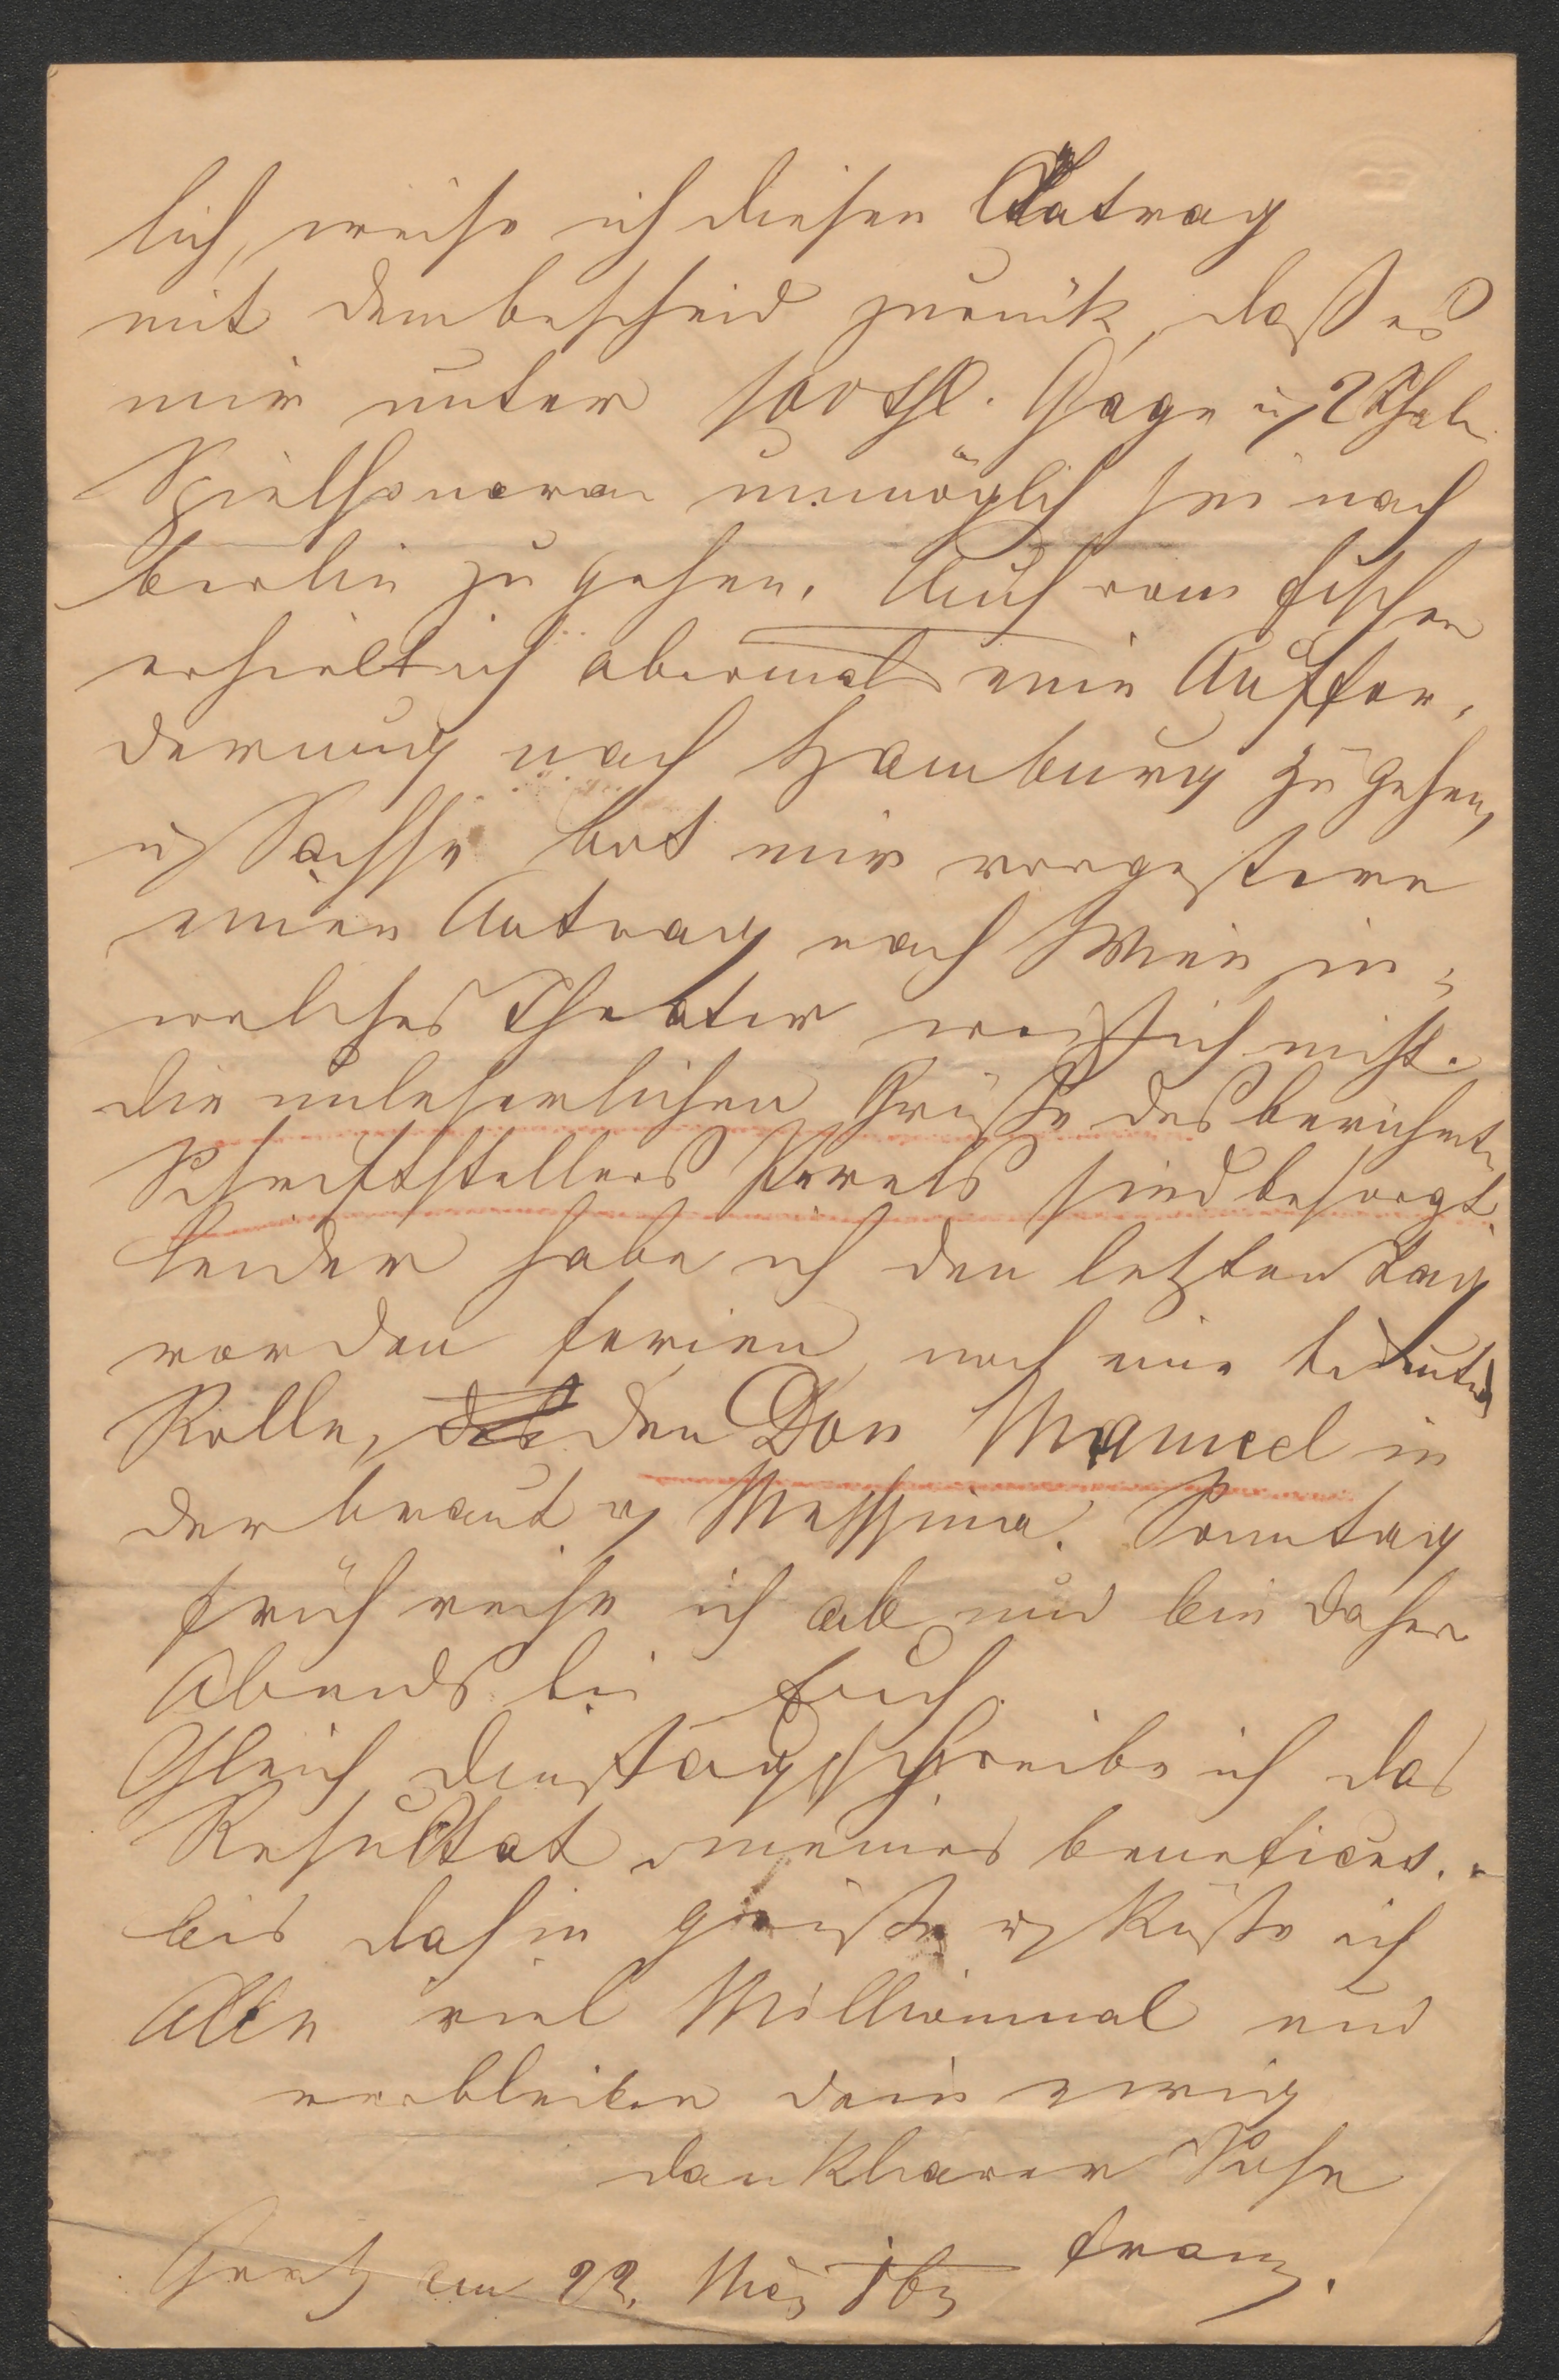 lich, weise ich diesen Antrag
mit dem bescheid zurück, daß es
mir unter 100 Thl. Gage u 2 Thal.
Spielhonorar unmöglich sei nach
Berlin zu gehen. Auch von Fischer
erhielt ich abermals eine Auffor-
derung nach Hamburg zu gehen,
u Sachse bot mir vorgestern
einen Antrag nach Wien, in
welches Theater weiß ich nicht.
Die unleserlichen Grüße des berühmte
Schriftstellers Perels sind besorgt.
Leider habe ich den letzten Tag
vor den Ferien noch eine bedeutde
Rolle, den Don Manuel in
der braut v Messina. Sonntag
früh reise ich ab und bin daher
Abends bei Euch.
Gleich Dienstag schreibe ich das
Resultat meines benefices.
bis dahin grüße u küße ich
Alle viel Millionmal und
verbleibe dein ewig
dankbarer Sohn
Franz.
Gratz am 22. Mäz